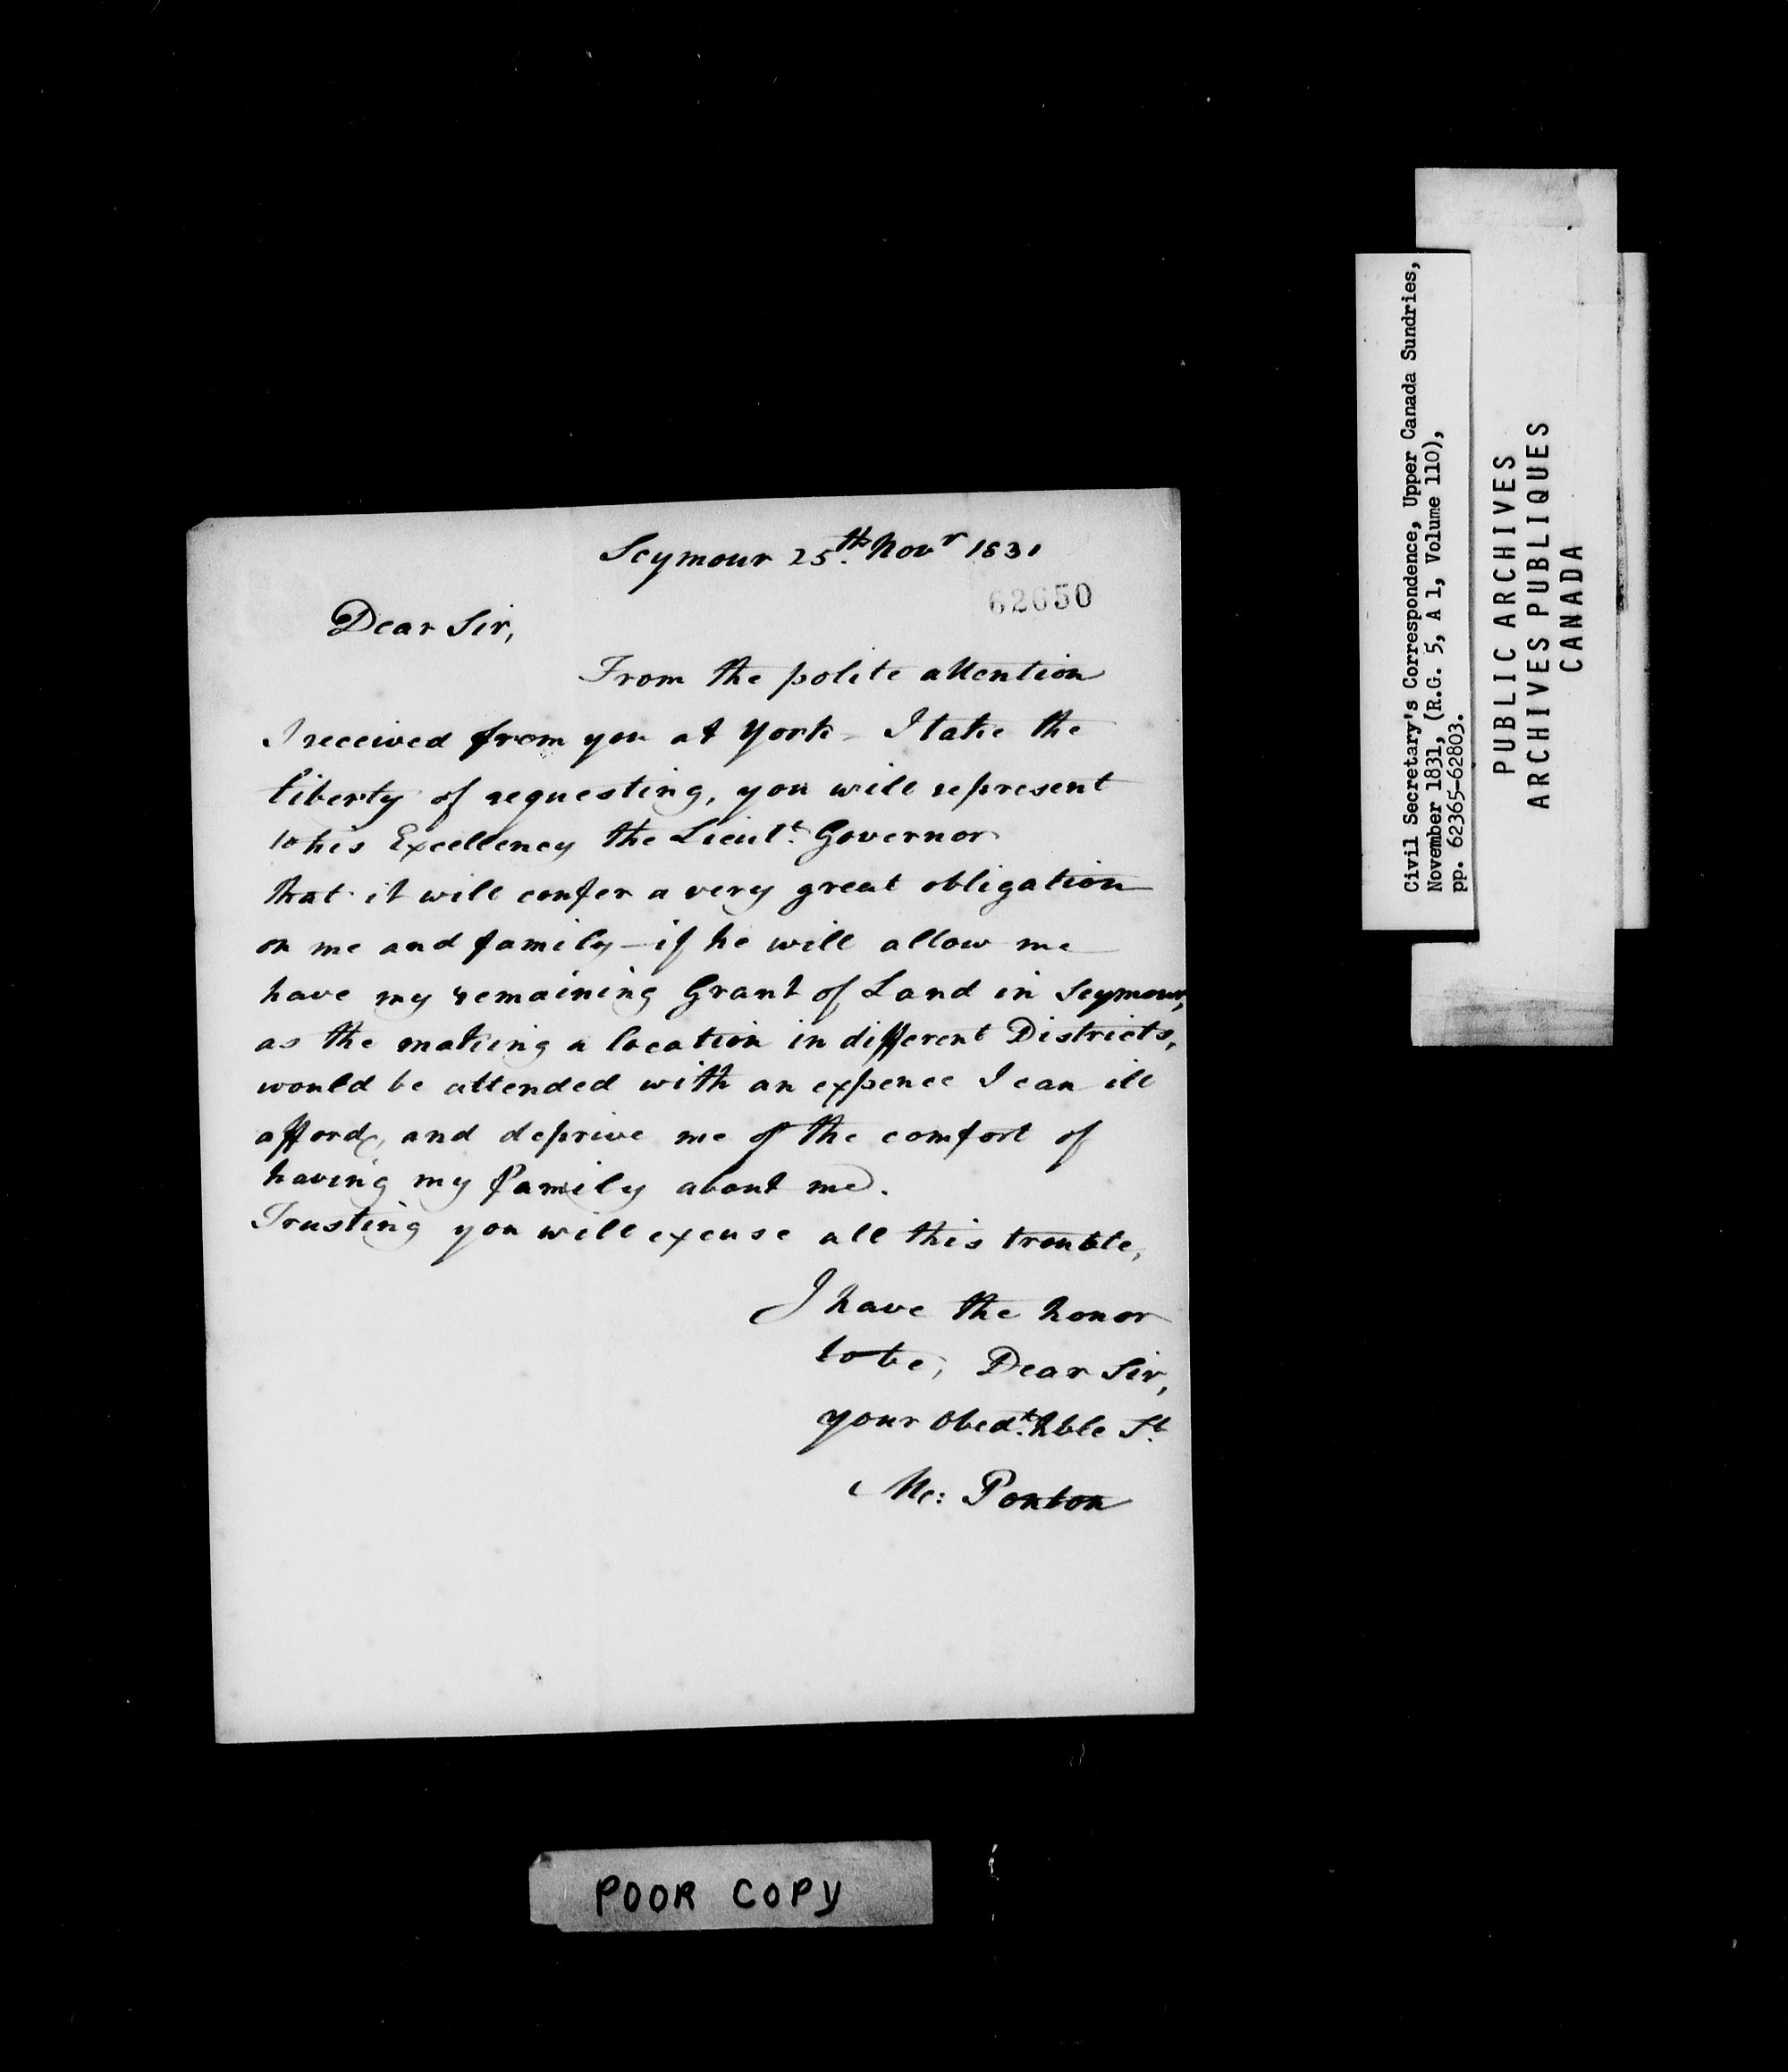 Seymour 25th. Novr 1831
62650
Dear Sir,
From the polite attention
I received from you at York – I take the
liberty of requesting, you will represent
to his Excellency the Lieut.t Governor
that it will confer a very great obligation
on me and family – if he will allow me
have my remaining Grant of Land in Seymour,
as the making a location in different Districts,
would be attended with an expence I can ill
afford, and deprive me of the comfort of
having my family about me.
Trusting you will excuse all this trouble,
I have the honor
to be, Dear Sir,
your Obedt. hble St.
Ponton
POOR COPY
Civil Secretary's Correspondence, Upper Canada Sundries,
November 1831, (R.G. 5, A 1, Volume 110),
pp. 62365-62803.
PUBLIC ARCHIVES
ARCHIVES PUBLIQUES
CANADA